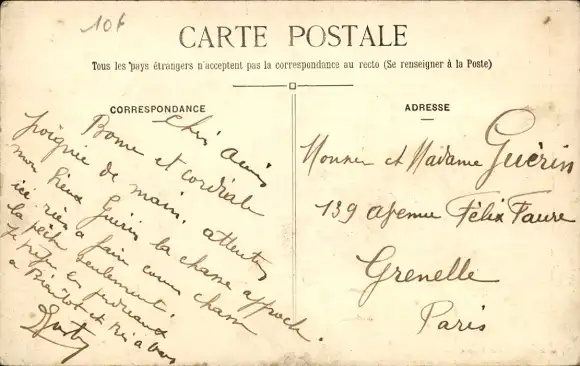 10f
CARTE POSTALE
Tous les pays étrangers n'acceptent pas la correspondance au recto (Se renseigner à la Poste)
CORRESPONDANCE
ADRESSE
Chers Amis
Bonne et cordiale
poignée de main. attention
mon vieux Guérin la chasse approche.
ici rien a faire comme chasse
la pêche seulement.
en perdreaux
a Bientôt et
Monsieur et Madame Guérin
139 avenue Félix Faure
Grenelle
Paris